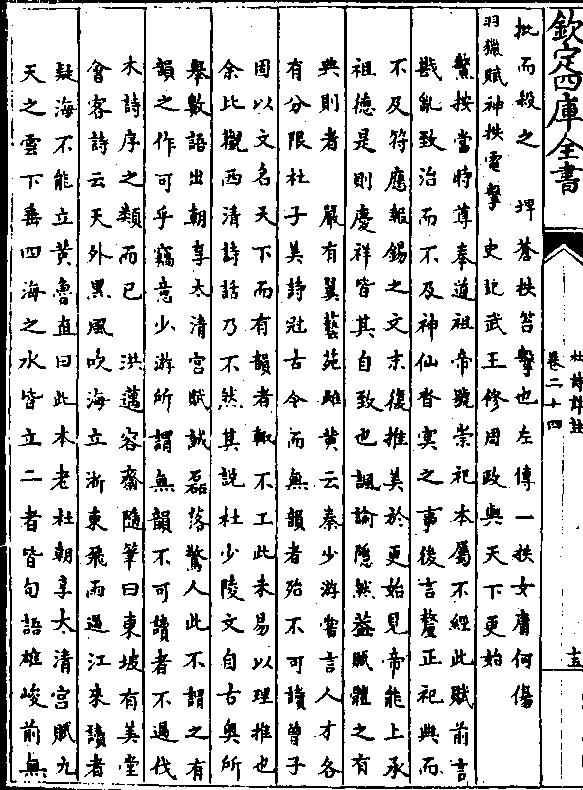 欽定四庫全書
杜詩詳註
卷二十四
十五
批而殺之　埤蒼抶笞擊也左傳一抶女膚何傷
羽獵賦神抶電擊　史記武王修周政與天下更始
鰲按當時尊奉道祖帝號崇祀本屬不經此賦前言
戡亂致治而不及神仙杳冥之事後言釐正祀典而
不及符應報錫之文末復推美於更始見帝能上承
祖德是則慶祥皆其自致也諷諭隱然益賦體之有
典則者　嚴有翼藝苑雌黃云秦少游嘗言人才各
有分限杜子美詩冠古今而無韻者殆不可讀曾子
固以文名天下而有韻者輒不工此未易以理推也
余比觀西清詩話乃不然其說杜少陵文自古奧所
舉數語出朝享太清宮賦誠磊落驚人此不謂之有
韻之作可乎竊意少游所謂無韻不可讀者不過伐
木詩序之類而已　洪邁容齋隨筆曰東坡有美堂
會客詩云天外黑風吹海立浙東飛雨過江來讀者
疑海不能立黃魯直曰此本老杜朝享太清宮賦九
天之雲下垂四海之水皆立二者皆句語雄峻前無